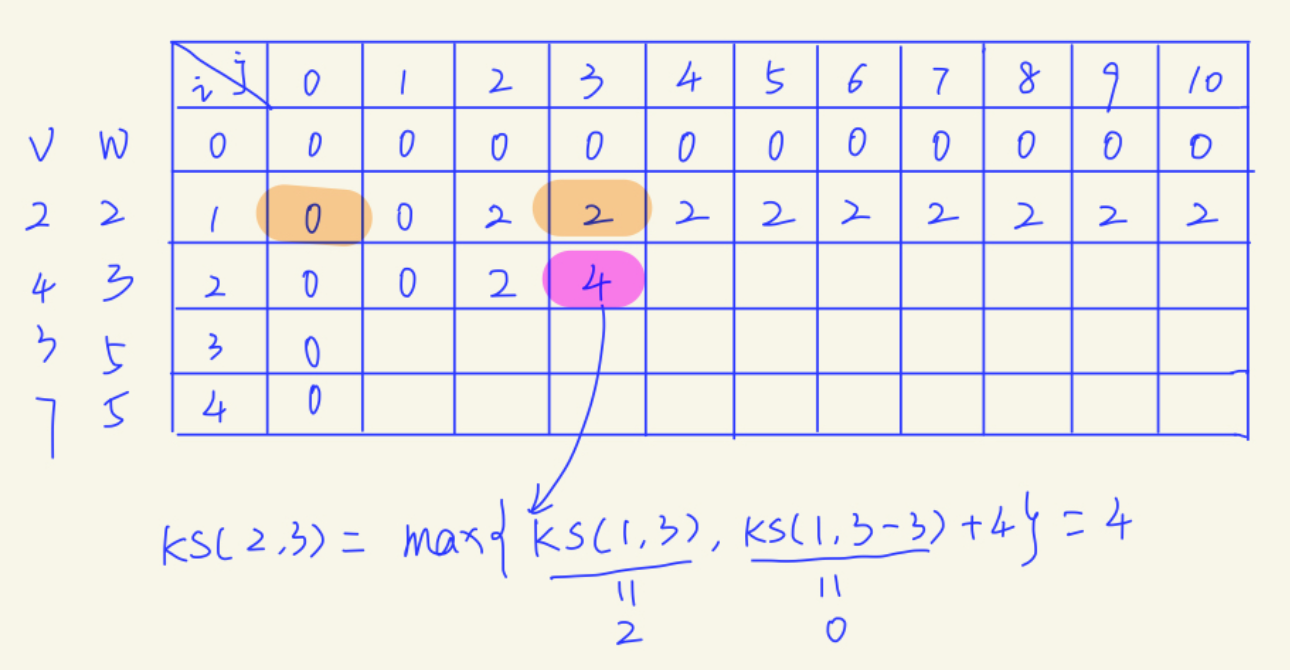 i j 0 1 2 3 4 5 6 7 8 9 10
V W 0 0 0 0 0 0 0 0 0 0 0 0
2 2 1 0 0 2 2 2 2 2 2 2 2 2
4 3 2 0 0 2 4
3 5 3 0
7 5 4 0
KS(2,3) = max{KS(1,3), KS(1,3-3)+4} = 4
= =
2 0